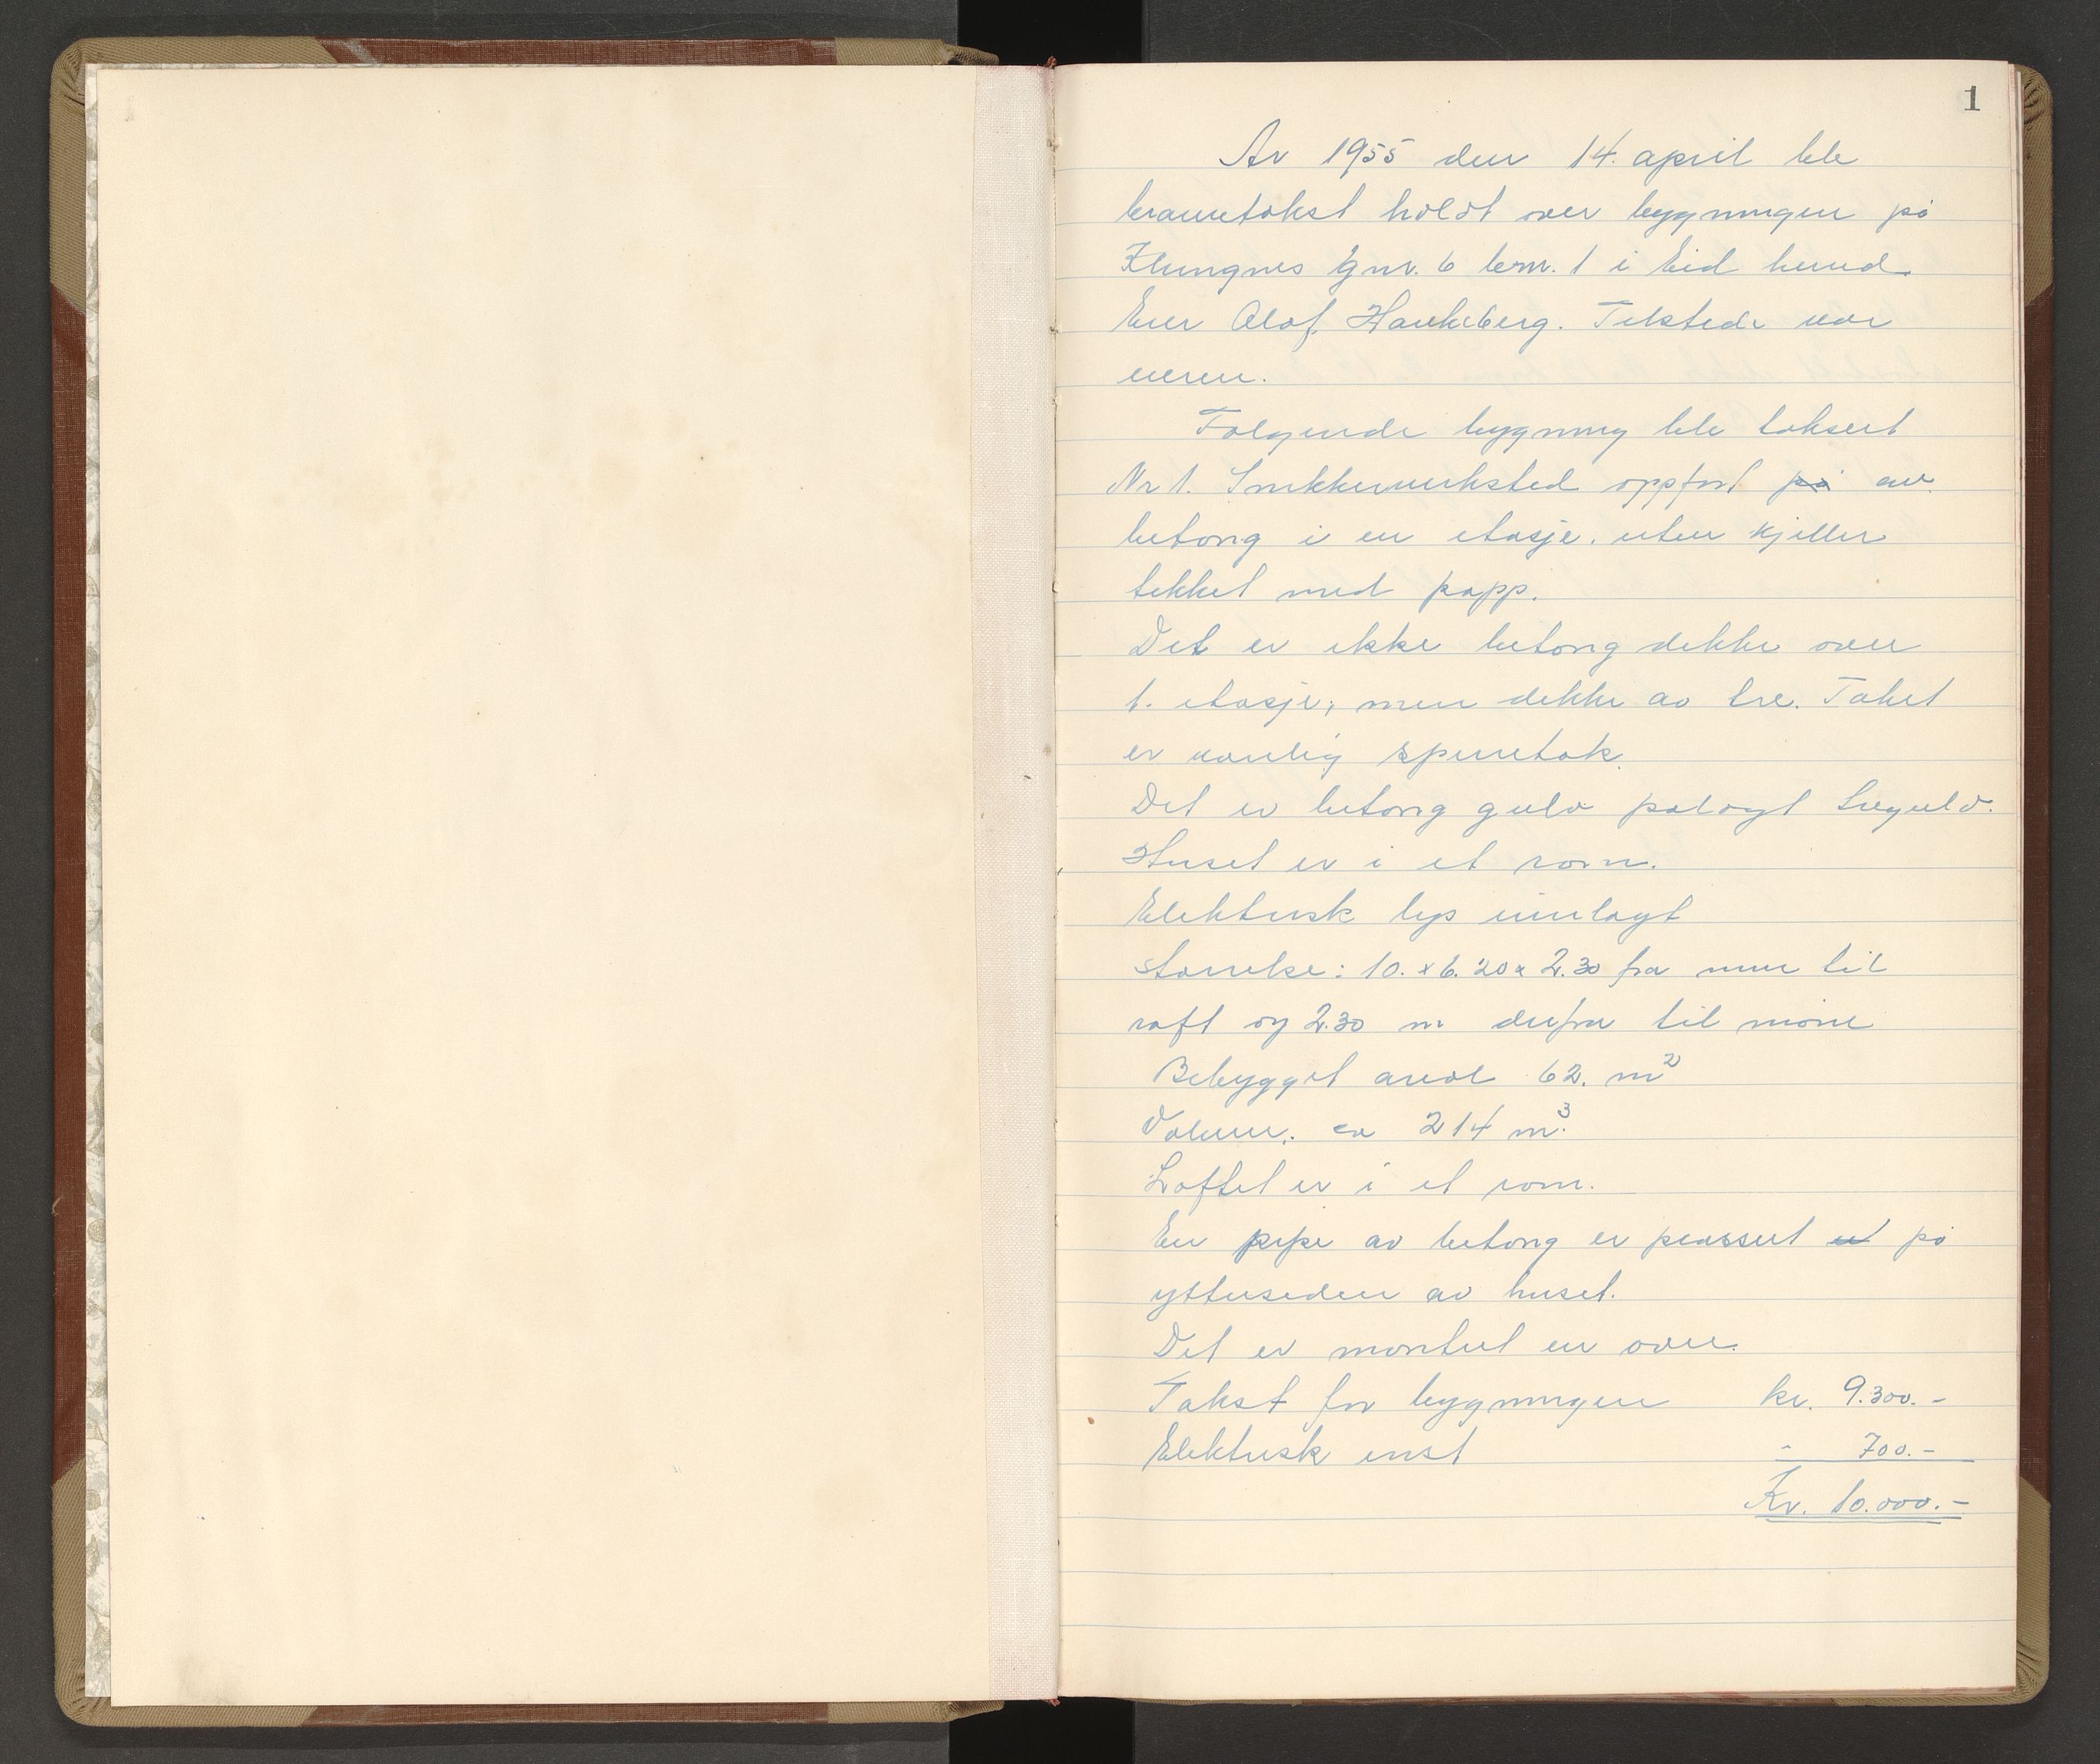 1
År 1955 den 14. april ble
branntakst holdt over bygningen på
Klungnes gnr. 6 bnr. 1 i Eid herred.
Eier Olof Hauksberg. Tilstede var
eieren.
Følgende bygning ble taksert
Nr 1. Snikkerverksted oppført på av
betong i en etasje. uten kjeller
tekket med papp.
Det er ikke betong dekke over
1. etasje; men dekke av tre. Taket
er vanlig sperretak.
Det er betong gulv pålagt tregulv.
Huset er i et rom.
Elektrisk lys innlagt
størrelse: 10. x 6.20 x 2.30 fra mur til
raft og 2.30 m derfra til møne
Bebygget areal 62. m²
Volum. ca 214 m³.
Loftet er i et rom.
En pipe av betong er plassert ut på
yttersiden av huset.
Det er montert en oven.
Takst for bygningen kr. 9.300.-
Elektrisk inst " 700.-
Kr. 10.000.-